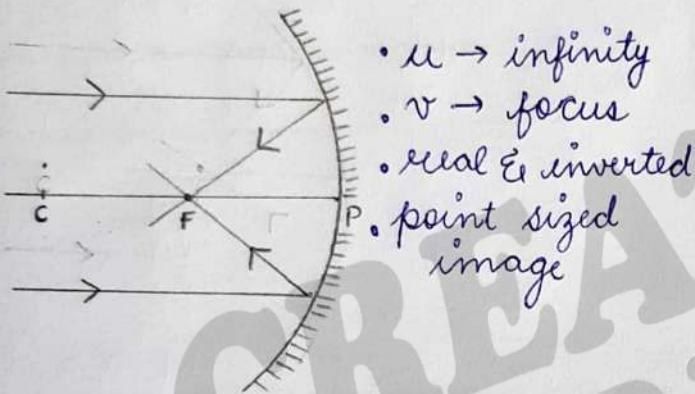 • u → infinity
• v → focus
• real & inverted
• point sized
image
C
F
P
CREAT